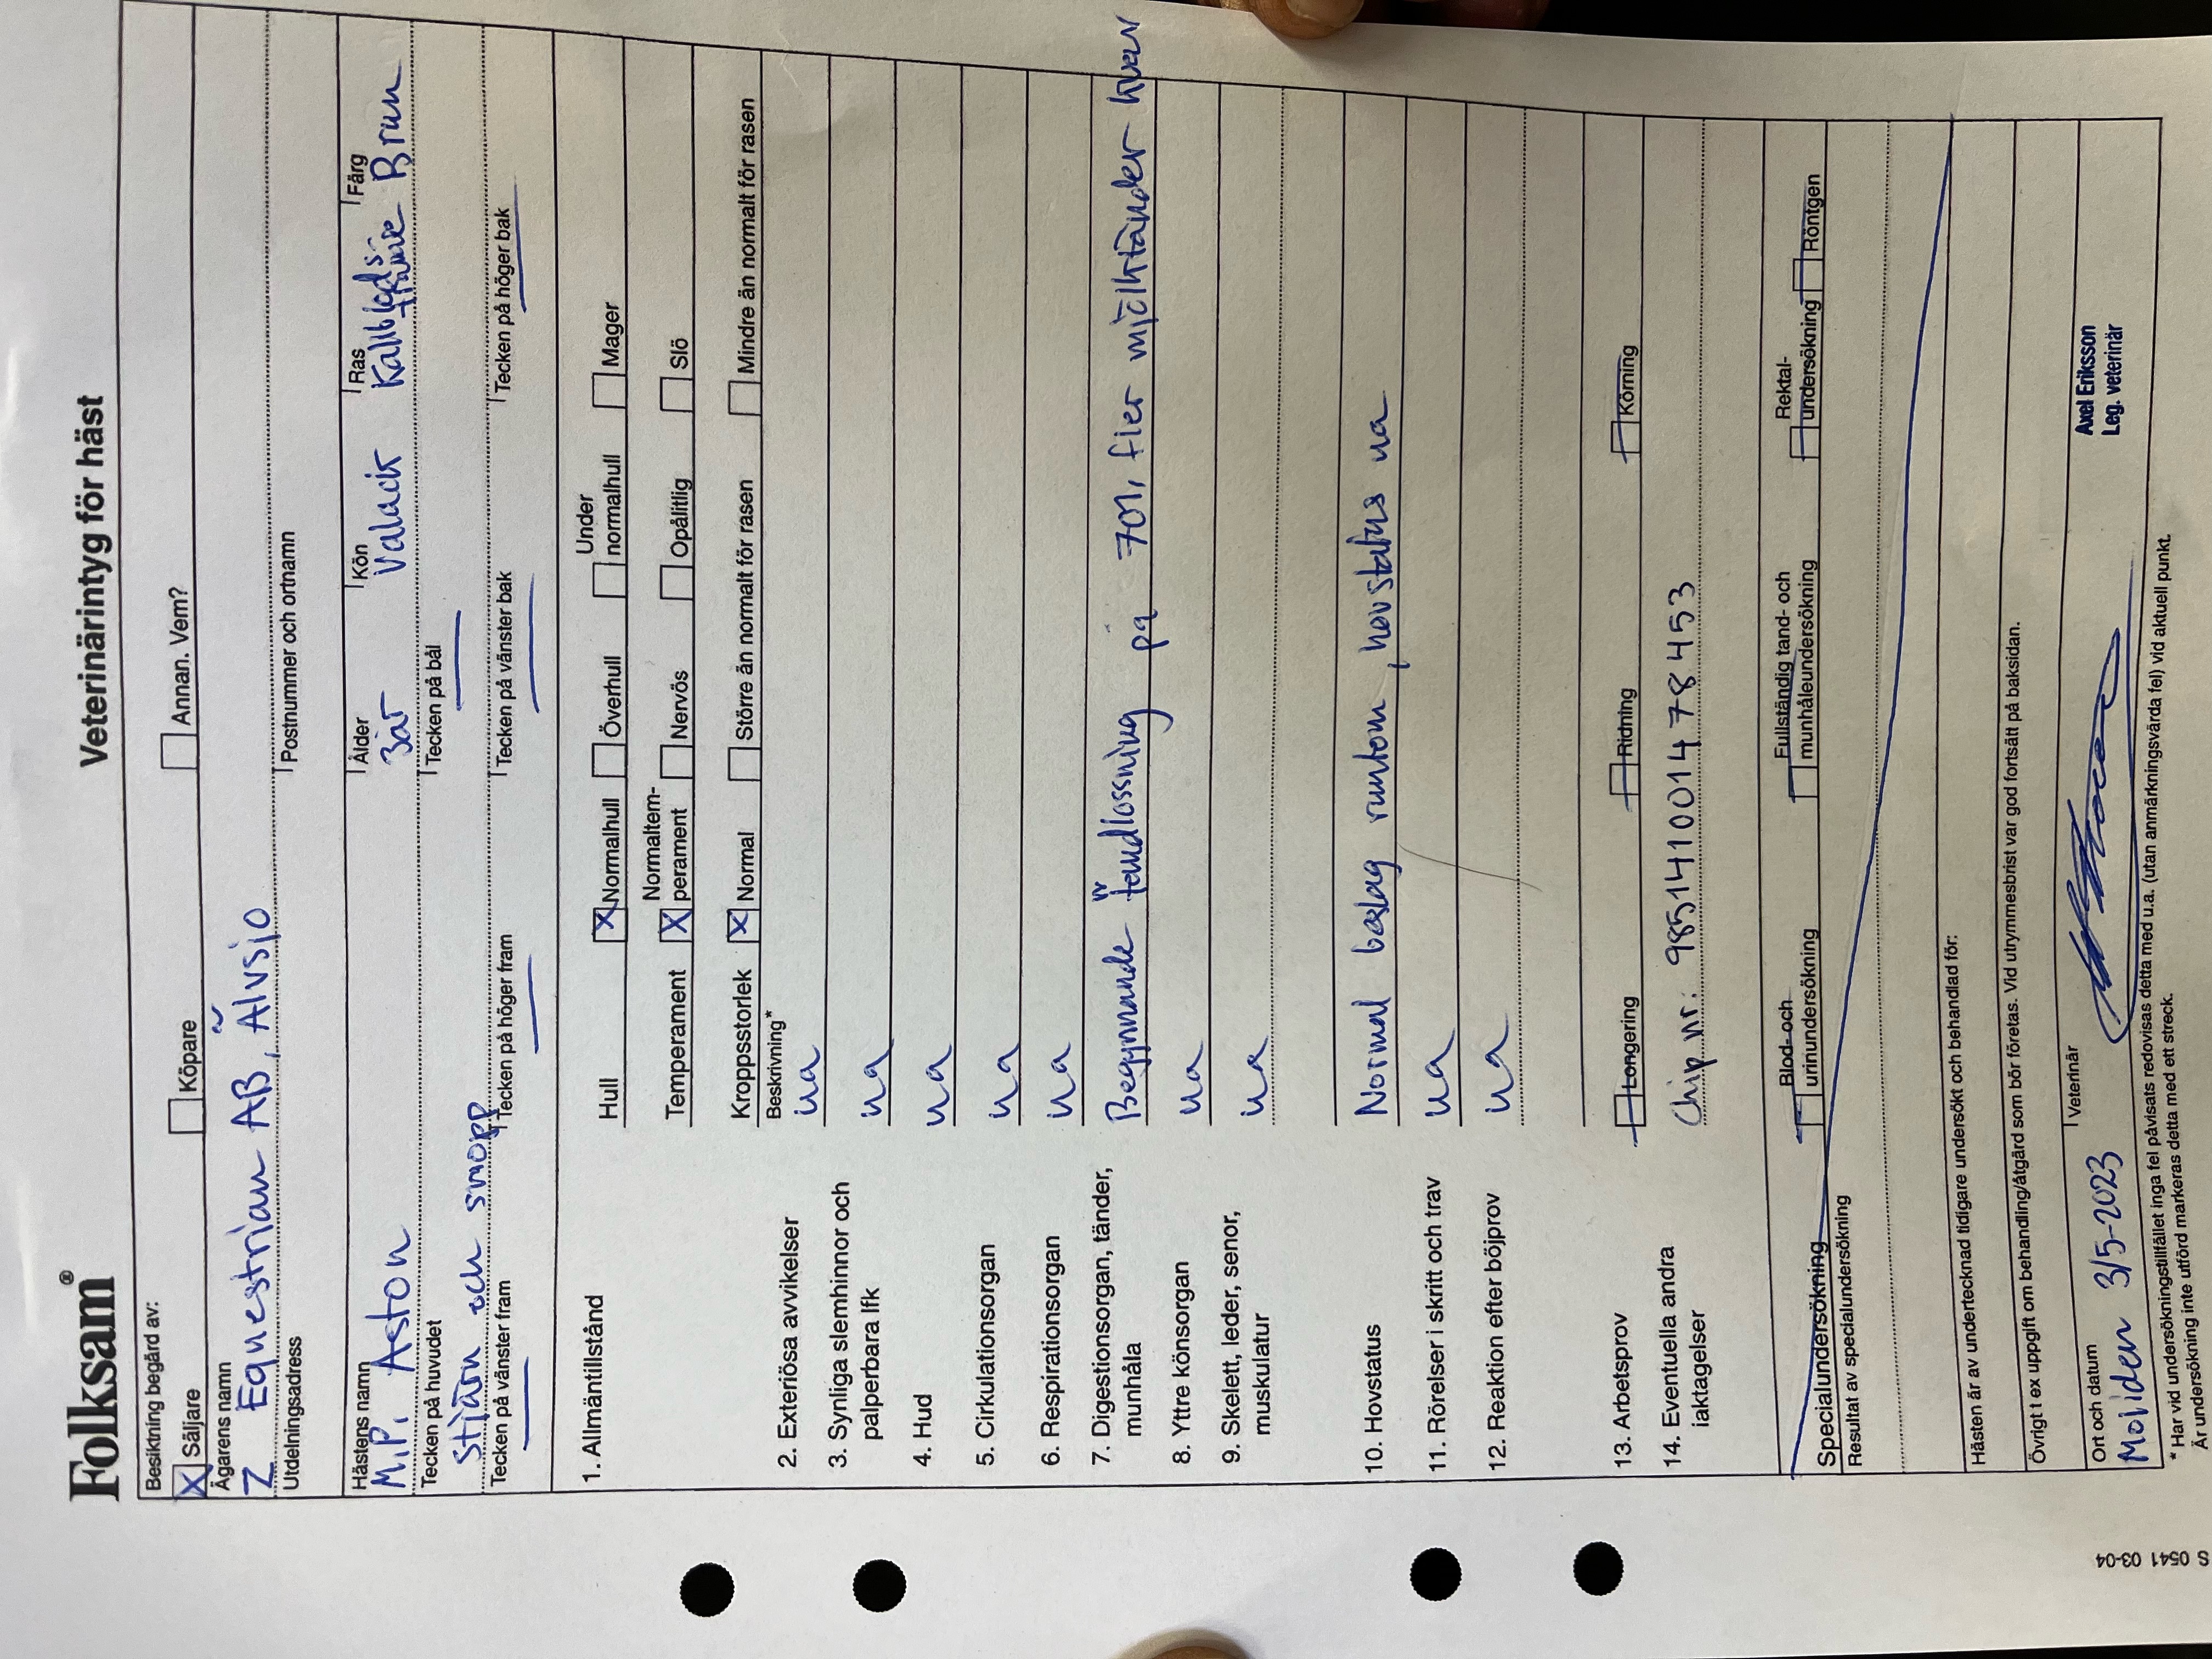 Folksam®
Veterinärintyg för häst
Besiktning begärd av:
X Säljare Köpare Annan. Vem?
Ägarens namn
Z Equestrian AB, Älvsjö
Utdelningsadress Postnummer och ortnamn
Hästens namn Ålder Kön Ras Färg
M.P. Aston 3år Valack Kallblods- travare Brun
Tecken på huvudet Tecken på bål
Stjärn och snopp
Tecken på vänster fram Tecken på höger fram Tecken på vänster bak Tecken på höger bak
1. Allmäntillstånd Hull X Normalhull Överhull Under normalhull Mager
Temperament X Normaltem- perament Nervös Opålitlig Slö
Kroppsstorlek X Normal Större än normalt för rasen Mindre än normalt för rasen
Beskrivning*
2. Exteriösa avvikelser ua
3. Synliga slemhinnor och
palperbara lfk ua
4. Hud ua
5. Cirkulationsorgan ua
6. Respirationsorgan ua
7. Digestionsorgan, tänder, Begynnande tandlossning på 701, fler mjölktänder kvar
munhåla
8. Yttre könsorgan ua
9. Skelett, leder, senor, ua
muskulatur
10. Hovstatus Normal beslag runtom, hovstatus ua
11. Rörelser i skritt och trav ua
12. Reaktion efter böjprov ua
13. Arbetsprov Longering Ridning Körning
14. Eventuella andra Chip nr: 985141001478453
iaktagelser
Specialundersökning Blod- och urinundersökning Fullständig tand- och munhåleundersökning Rektal- undersökning Röntgen
Resultat av specialundersökning
Hästen är av undertecknad tidigare undersökt och behandlad för:
Övrigt t ex uppgift om behandling/åtgärd som bör företas. Vid utrymmesbrist var god fortsätt på baksidan.
Ort och datum Veterinär
Moliden 3/5-2023
Axel Eriksson
Leg. veterinär
* Har vid undersökningstillfället inga fel påvisats redovisas detta med u.a. (utan anmärkningsvärda fel) vid aktuell punkt.
Är undersökning inte utförd markeras detta med ett streck.
S 0541 03-04